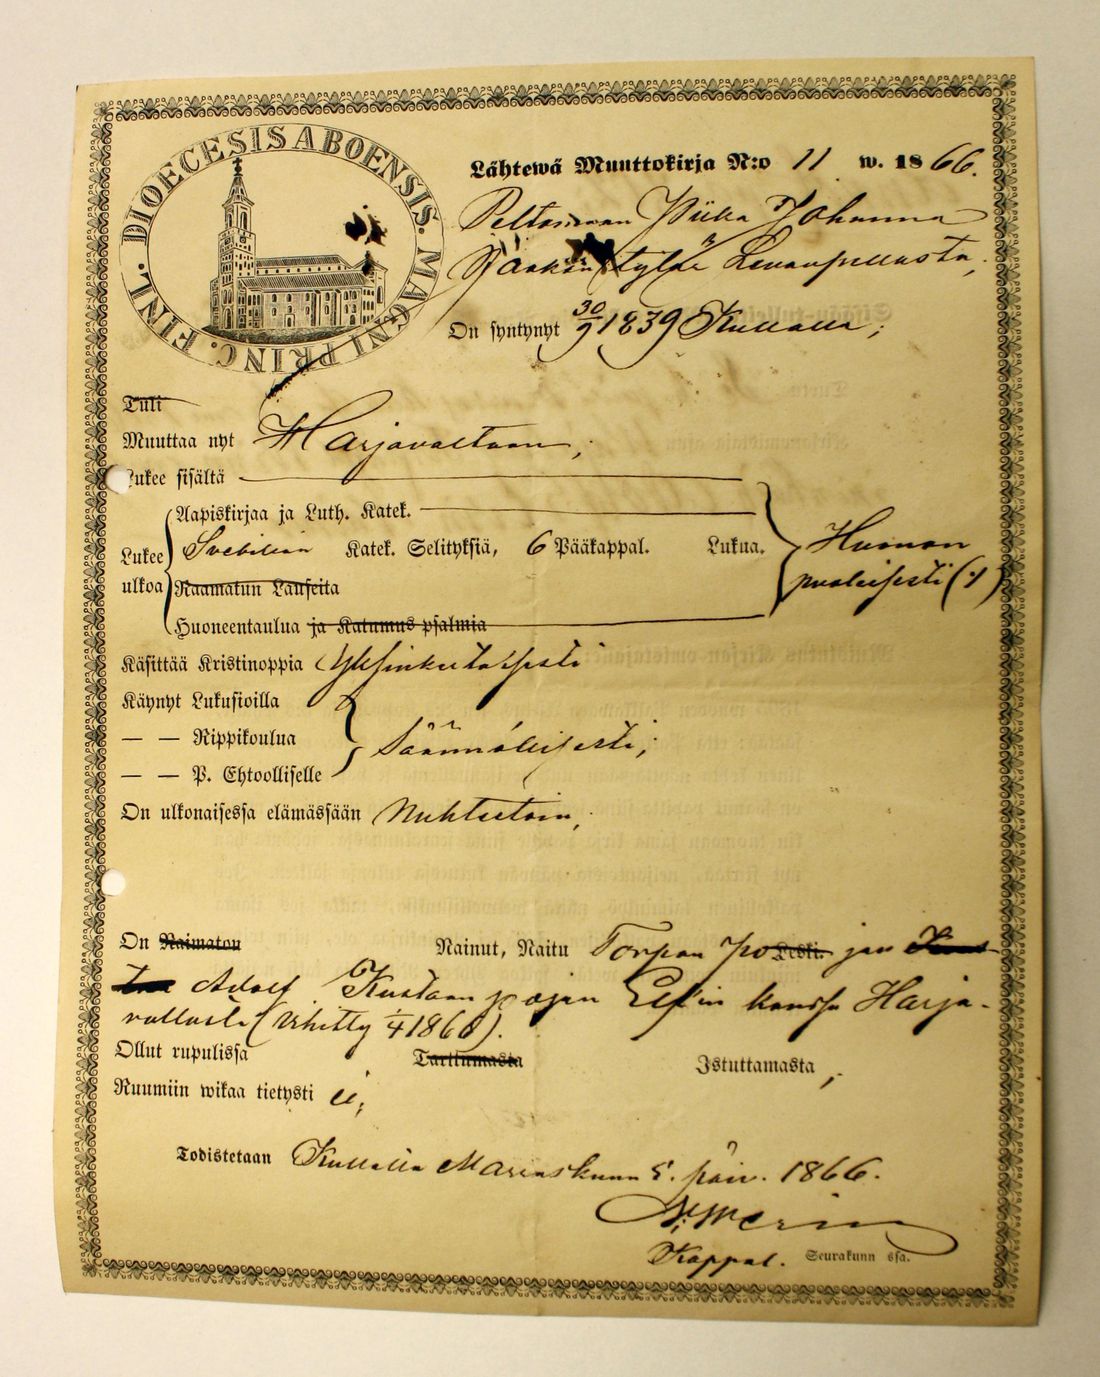 FINL. DIOECESIS ABOENSIS. MAGNI PRINC.
Lähtewä Muuttokirja N:o 11 w. 1866.
Piika Johanna
tytär Levanpellosta,
On syntynyt 30/9 1839 Kullalla;
Tuli
Muuttaa nyt Harjavaltaan,
Lukee sisältä
Aapiskirjaa ja Luth. Katek.
Lukee ulkoa
Svebilion Katek. Selityksiä, 6 Pääkappal. Lukua.
Huonon puoleisesti (:/.)
Raamatun Lauseita
Huoneentaulua ja Katumus psalmia
Käsittää Kristinoppia Yksinkertaisesti
Käynyt Lukusioilla
— — Rippikoulua
Säännöllisesti;
— — P. Ehtoolliselle
On ulkonaisessa elämässään Nuhteetoin,
On Naimaton Nainut, Naitu Torpan po Leski. jan
Adolf Kustaan pojan kanssa Harja-
vallasta (vihitty 1/4 1866).
Ollut rupulissa Tarttumasta Istuttamasta,
Ruumiin wikaa tietysti ei;
Todistetaan Kullalla Marraskuun 5. päiv. 1866.
Kappal. Seurakunn ssa.